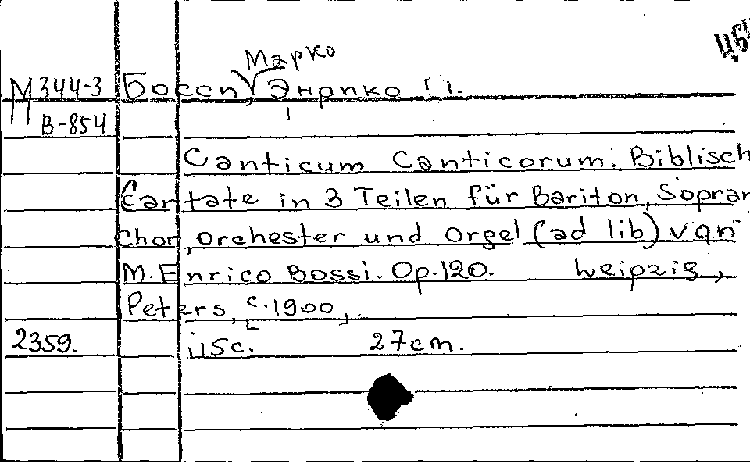 Марко
М 344-3 Босси, Энрико
В-854
Canticum Canticorum. Biblisch
Cantate in 3 Teilen für Bariton, Sopran
Chor, Orchester und Orgel (ad lib) von
M. Enrico Bossi. Op. 120. Leipzig,
Peters, [c. 1900].
2359. 27 cm.